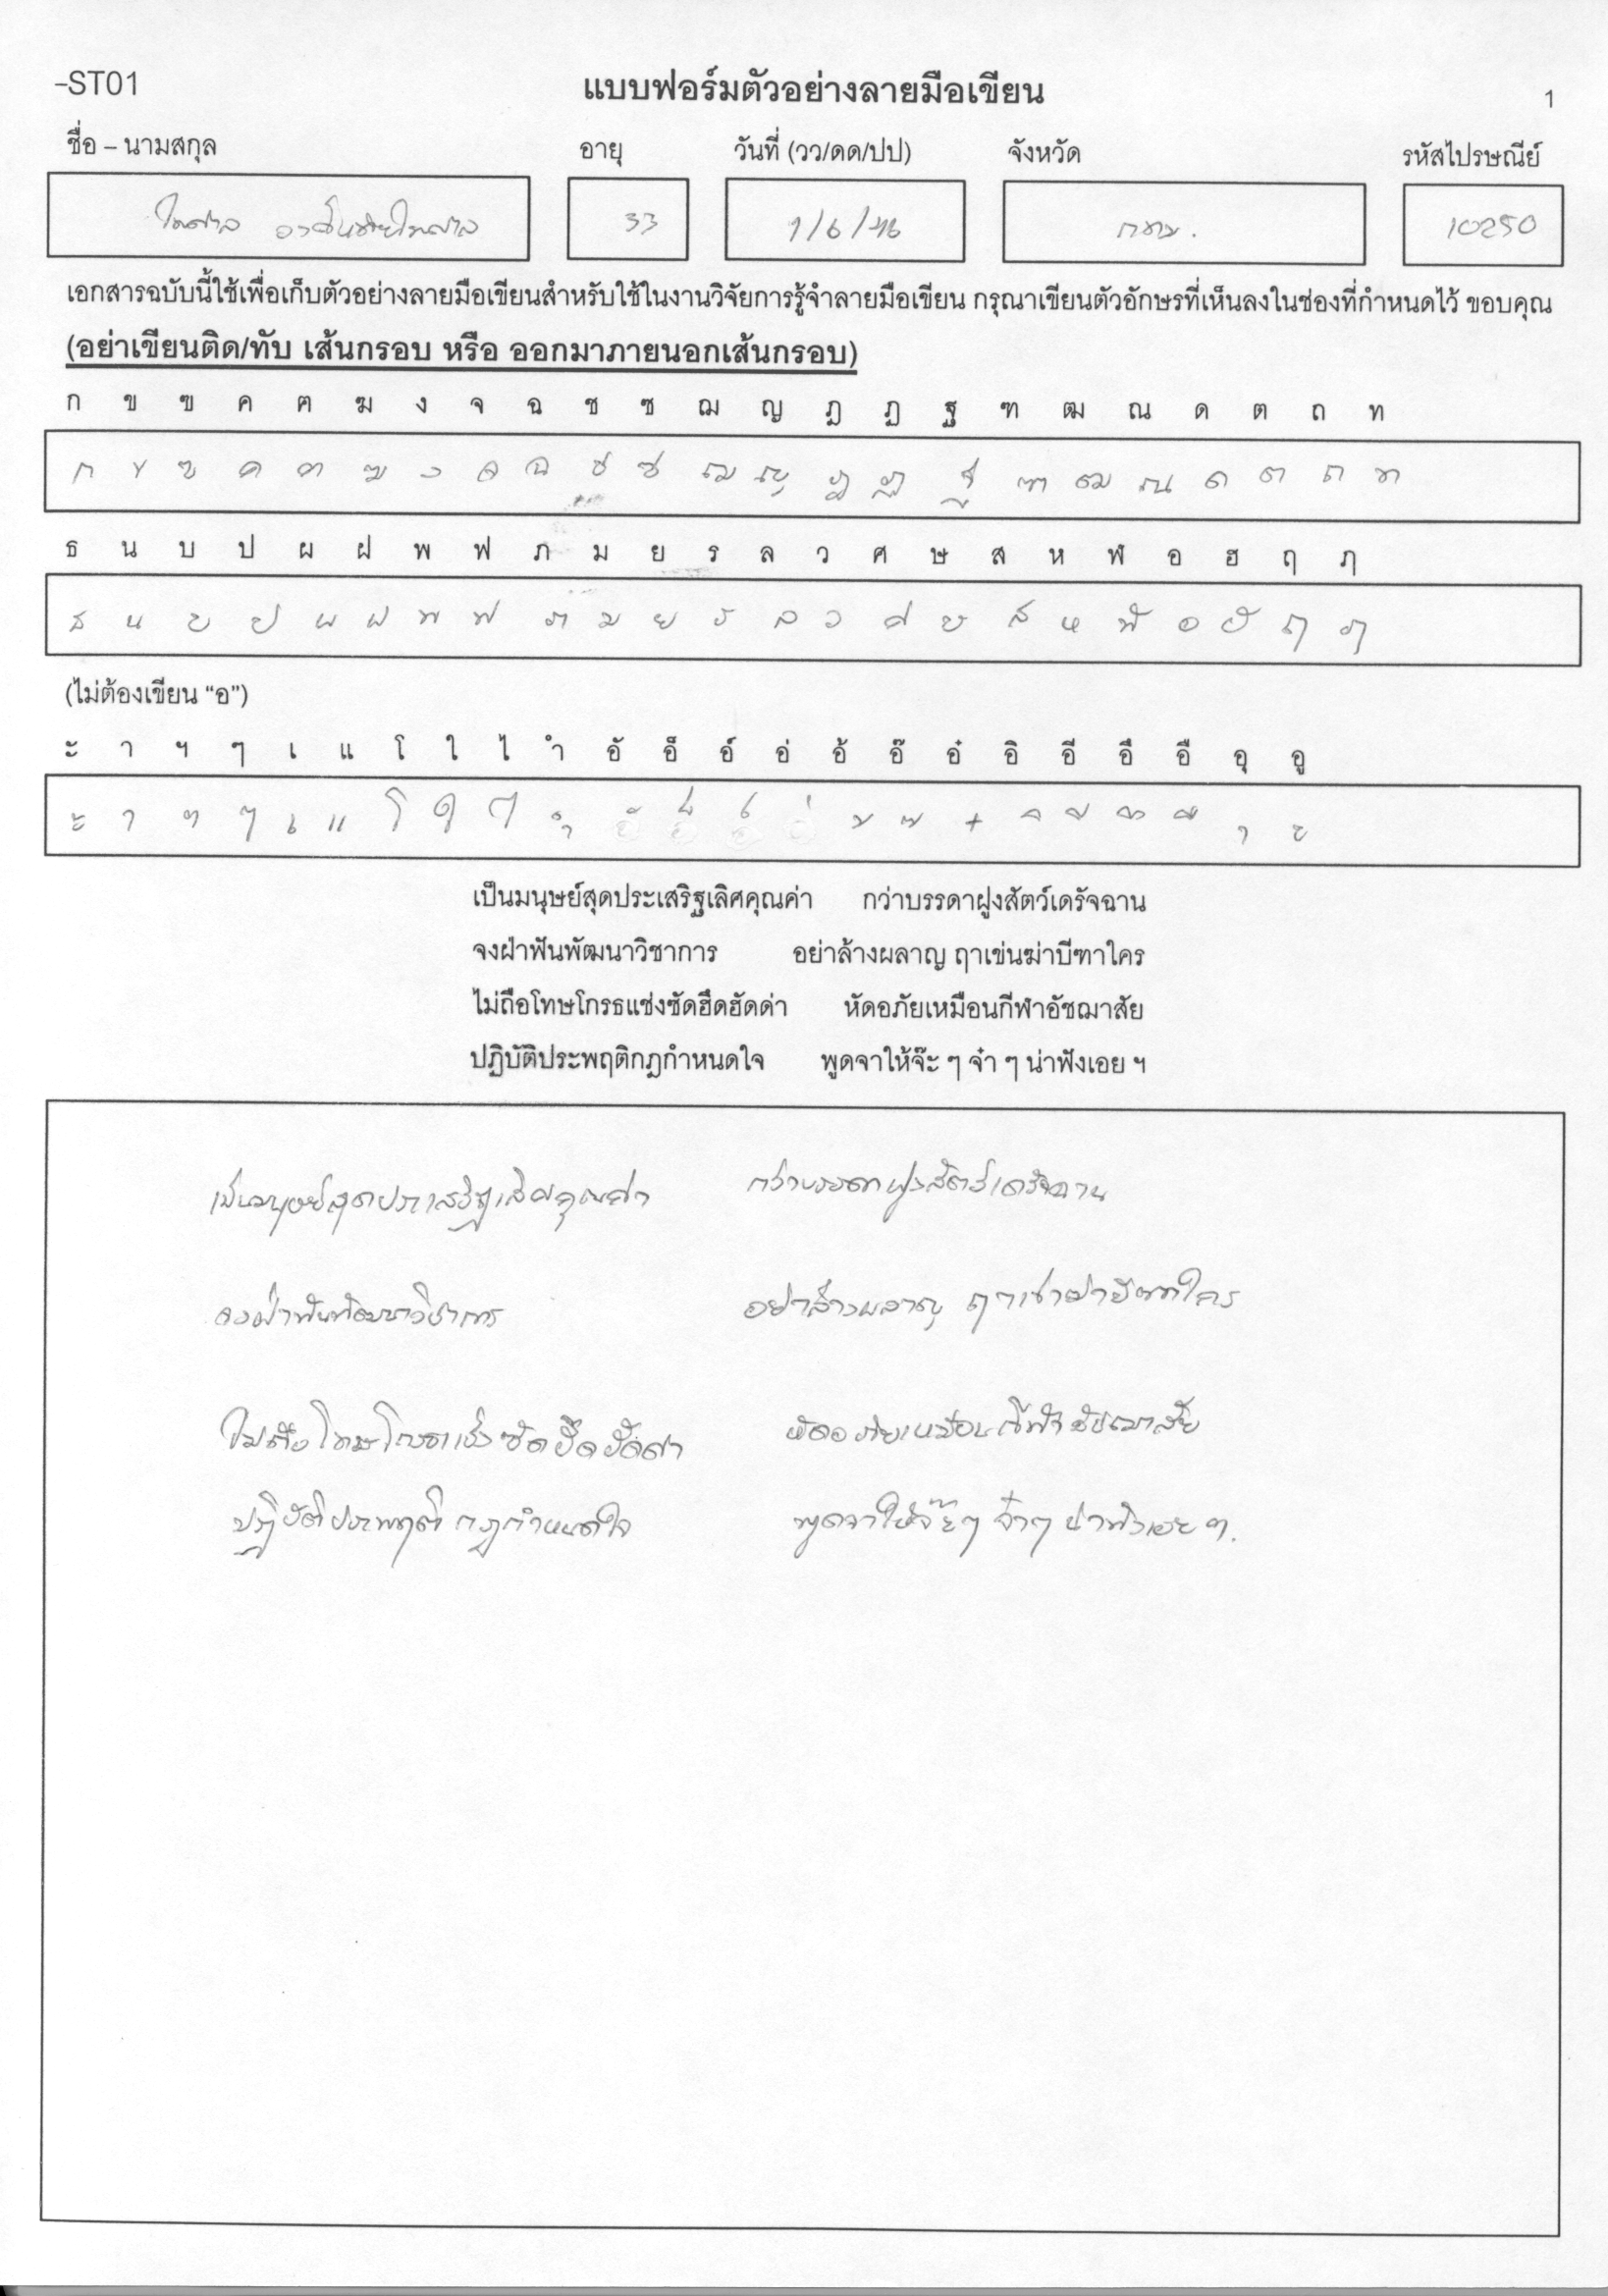 -ST01
แบบฟอร์มตัวอย่างลายมือเขียน
1
ชื่อ – นามสกุล อายุ วันที่ (วว/ดด/ปป) จังหวัด รหัสไปรษณีย์
ไพศาล 33 1/6/46 กทม. 10250
เอกสารฉบับนี้ใช้เพื่อเก็บตัวอย่างลายมือเขียนสำหรับใช้ในงานวิจัยการรู้จำลายมือเขียน กรุณาเขียนตัวอักษรที่เห็นลงในช่องที่กำหนดไว้ ขอบคุณ
(อย่าเขียนติด/ทับ เส้นกรอบ หรือ ออกมาภายนอกเส้นกรอบ)
ก ข ฃ ค ฅ ฆ ง จ ฉ ช ซ ฌ ญ ฎ ฏ ฐ ฑ ฒ ณ ด ต ถ ท
ก ข ฃ ค ฅ ฆ ง จ ฉ ช ซ ฌ ญ ฎ ฏ ฐ ฑ ฒ ณ ด ต ถ ท
ธ น บ ป ผ ฝ พ ฟ ภ ม ย ร ล ว ศ ษ ส ห ฬ อ ฮ ฤ ฦ
ธ น บ ป ผ ฝ พ ฟ ภ ม ย ร ล ว ศ ษ ส ห ฬ อ ฮ ฤ ฦ
(ไม่ต้องเขียน “อ”)
ะ า ฯ ๆ เ แ โ ใ ไ ำ อั อ็ อ์ อ่ อ้ อ๊ อ๋ อิ อี อึ อื อุ อู
ะ า ฯ ๆ เ แ โ ใ ไ ำ ั ็ ์ ่ ้ ๊ ๋ ิ ี ึ ื ุ ู
เป็นมนุษย์สุดประเสริฐเลิศคุณค่า กว่าบรรดาฝูงสัตว์เดรัจฉาน
จงฝ่าฟันพัฒนาวิชาการ อย่าล้างผลาญ ฤาเข่นฆ่าบีฑาใคร
ไม่ถือโทษโกรธแช่งซัดฮึดฮัดด่า หัดอภัยเหมือนกีฬาอัชฌาสัย
ปฏิบัติประพฤติกฎกำหนดใจ พูดจาให้จ๊ะ ๆ จ๋า ๆ น่าฟังเอย ฯ
เป็นมนุษย์สุดประเสริฐเลิศคุณค่า กว่าบรรดาฝูงสัตว์เดรัจฉาน
จงฝ่าฟันพัฒนาวิชาการ อย่าล้างผลาญ ฤาเข่นฆ่าบีฑาใคร
ไม่ถือโทษโกรธแช่งซัดฮึดฮัดด่า หัดอภัยเหมือนกีฬาอัชฌาสัย
ปฏิบัติประพฤติกฎกำหนดใจ พูดจาให้จ๊ะๆ จ๋าๆ น่าฟังเอย ฯ.